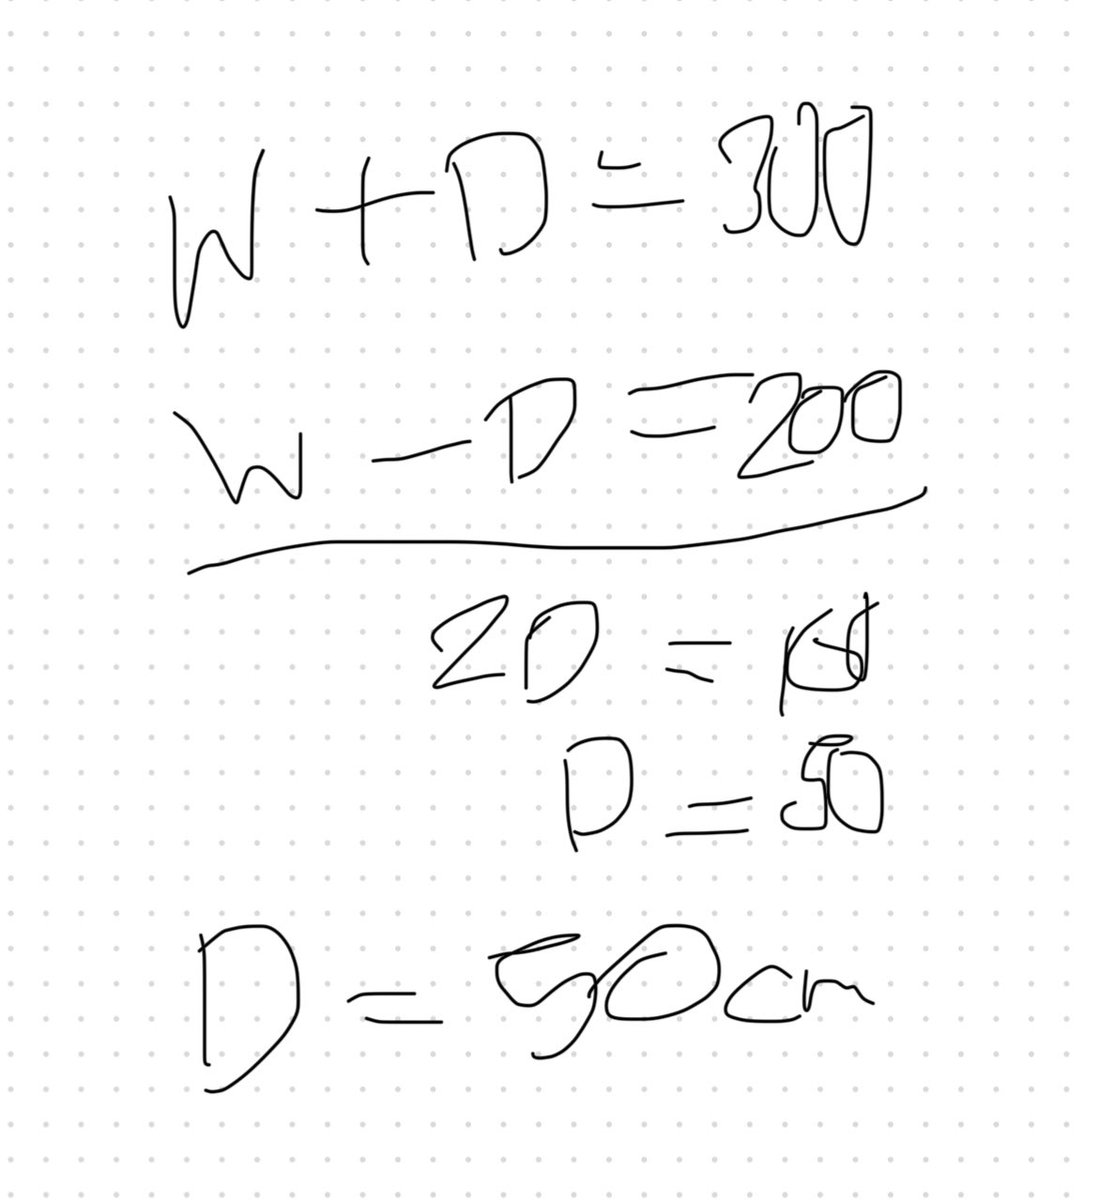 W + D = 300
W - D = 200
2D =
D = 50
D = 50cm